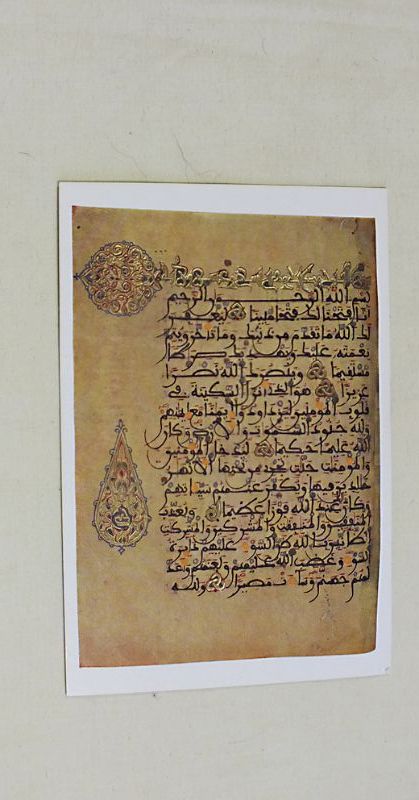 بسم الله الرحمن الرحيم
إنا فتحنا لك فتحا مبينا ليغفر
لك الله ما تقدم من ذنبك وما تأخر ويتم
نعمته عليك ويهديك صراطا
مستقيما وينصرك الله نصرا
عزيزا هو الذي أنزل السكينة في
قلوب المومنين ليزدادوا إيمنا مع إيمنهم
ولله جنود السموت والارض وكان
الله عليما حكيما ليدخل المومنين
والمومنت جنت تجري من تحتها الانهر
خلدين فيها ويكفر عنهم سياتهم
وكان ذلك عند الله فوزا عظيما ويعذب
المنفقين والمنفقت والمشركين والمشركت
الظانين بالله ظن السوء عليهم دائرة
السوء وغضب الله عليهم ولعنهم وأعد
لهم جهنم وساءت مصيرا ولله